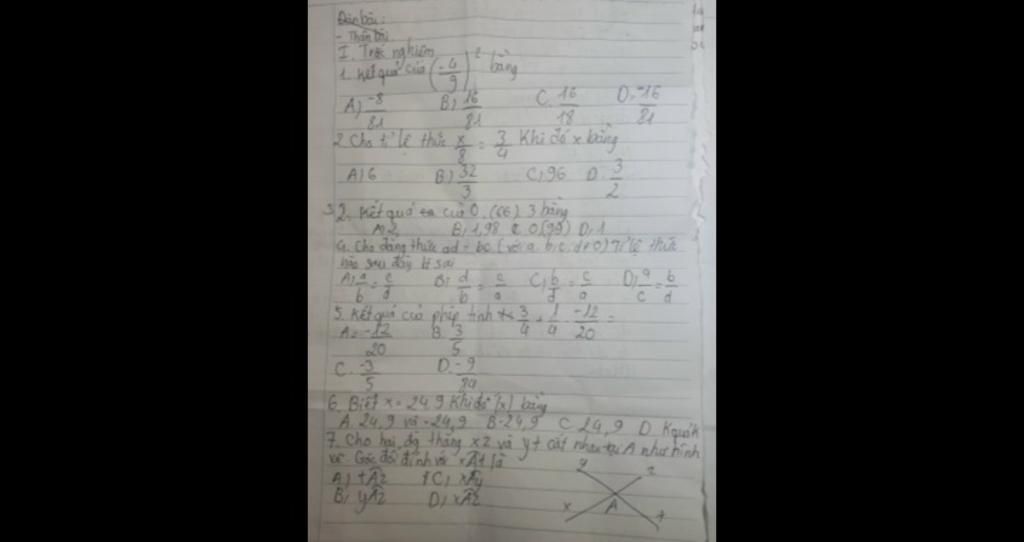 Dàn bài:
- Thân bài
I. Trắc nghiệm
1. Kết quả của (-4/9)^2 bằng
A) -8/81 B) 16/81 C. 16/18 D. -16/81
2 Cho tỉ lệ thức x/8 = 3/4 Khi đó x bằng
A) 6 B) 32/3 C) 96 D. 3/2
3. Kết quả của 0,(66).3 bằng
A) 2 B) 1,98 C. 0,(99) D) 1
4. Cho đẳng thức ad = bc (với a, b, c, d ≠ 0) Tỉ lệ thức
nào sau đây là sai
A) a/b = c/d B) d/b = c/a C) b/d = c/a D) a/c = b/d
5. Kết quả của phép tính 3/4 + 1/4 . -12/20 =
A. -12/20 B. 3/5
C. -3/5 D. -9/84
6. Biết x = 24,9 Khi đó |x| bằng
A. 24,9 và -24,9 B. -24,9 C 24,9 D K quả k
7. Cho hai đg thẳng xz và yt cắt nhau tại A như hình
vẽ. Góc đối đỉnh với xAt là
A) tAz C) xAy
B) yAz D) xAz
y z
x A t